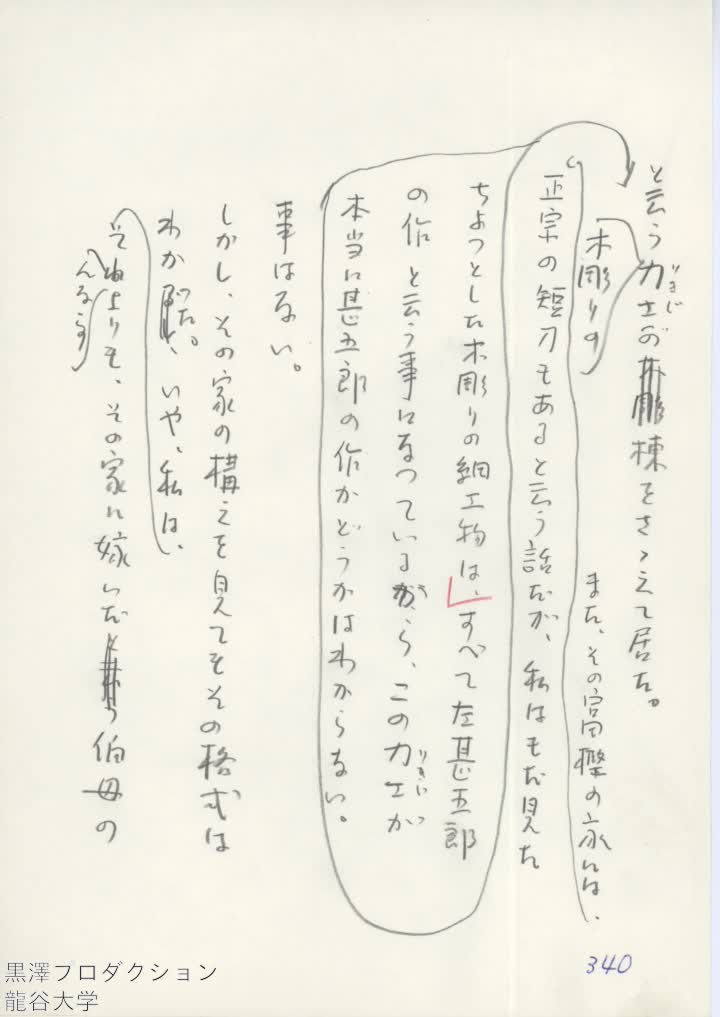 と云う力士が棟をさゝえて居た。
りきじ
木彫りの
また、その富樫の家には、
正宗の短刀もあると云う話だが、私はまだ見た
ちょっとした木彫りの細工物は、すべて左甚五郎
の作と云う事になっているから、この力士が
りきし
本当に甚五郎の作かどうかはわからない。
事はない。
しかし、その家の構えを見てもその格式は
わかった。いや、私は、
それよりも、その家に嫁いだ伯母の
340
黒澤プロダクション
龍谷大学